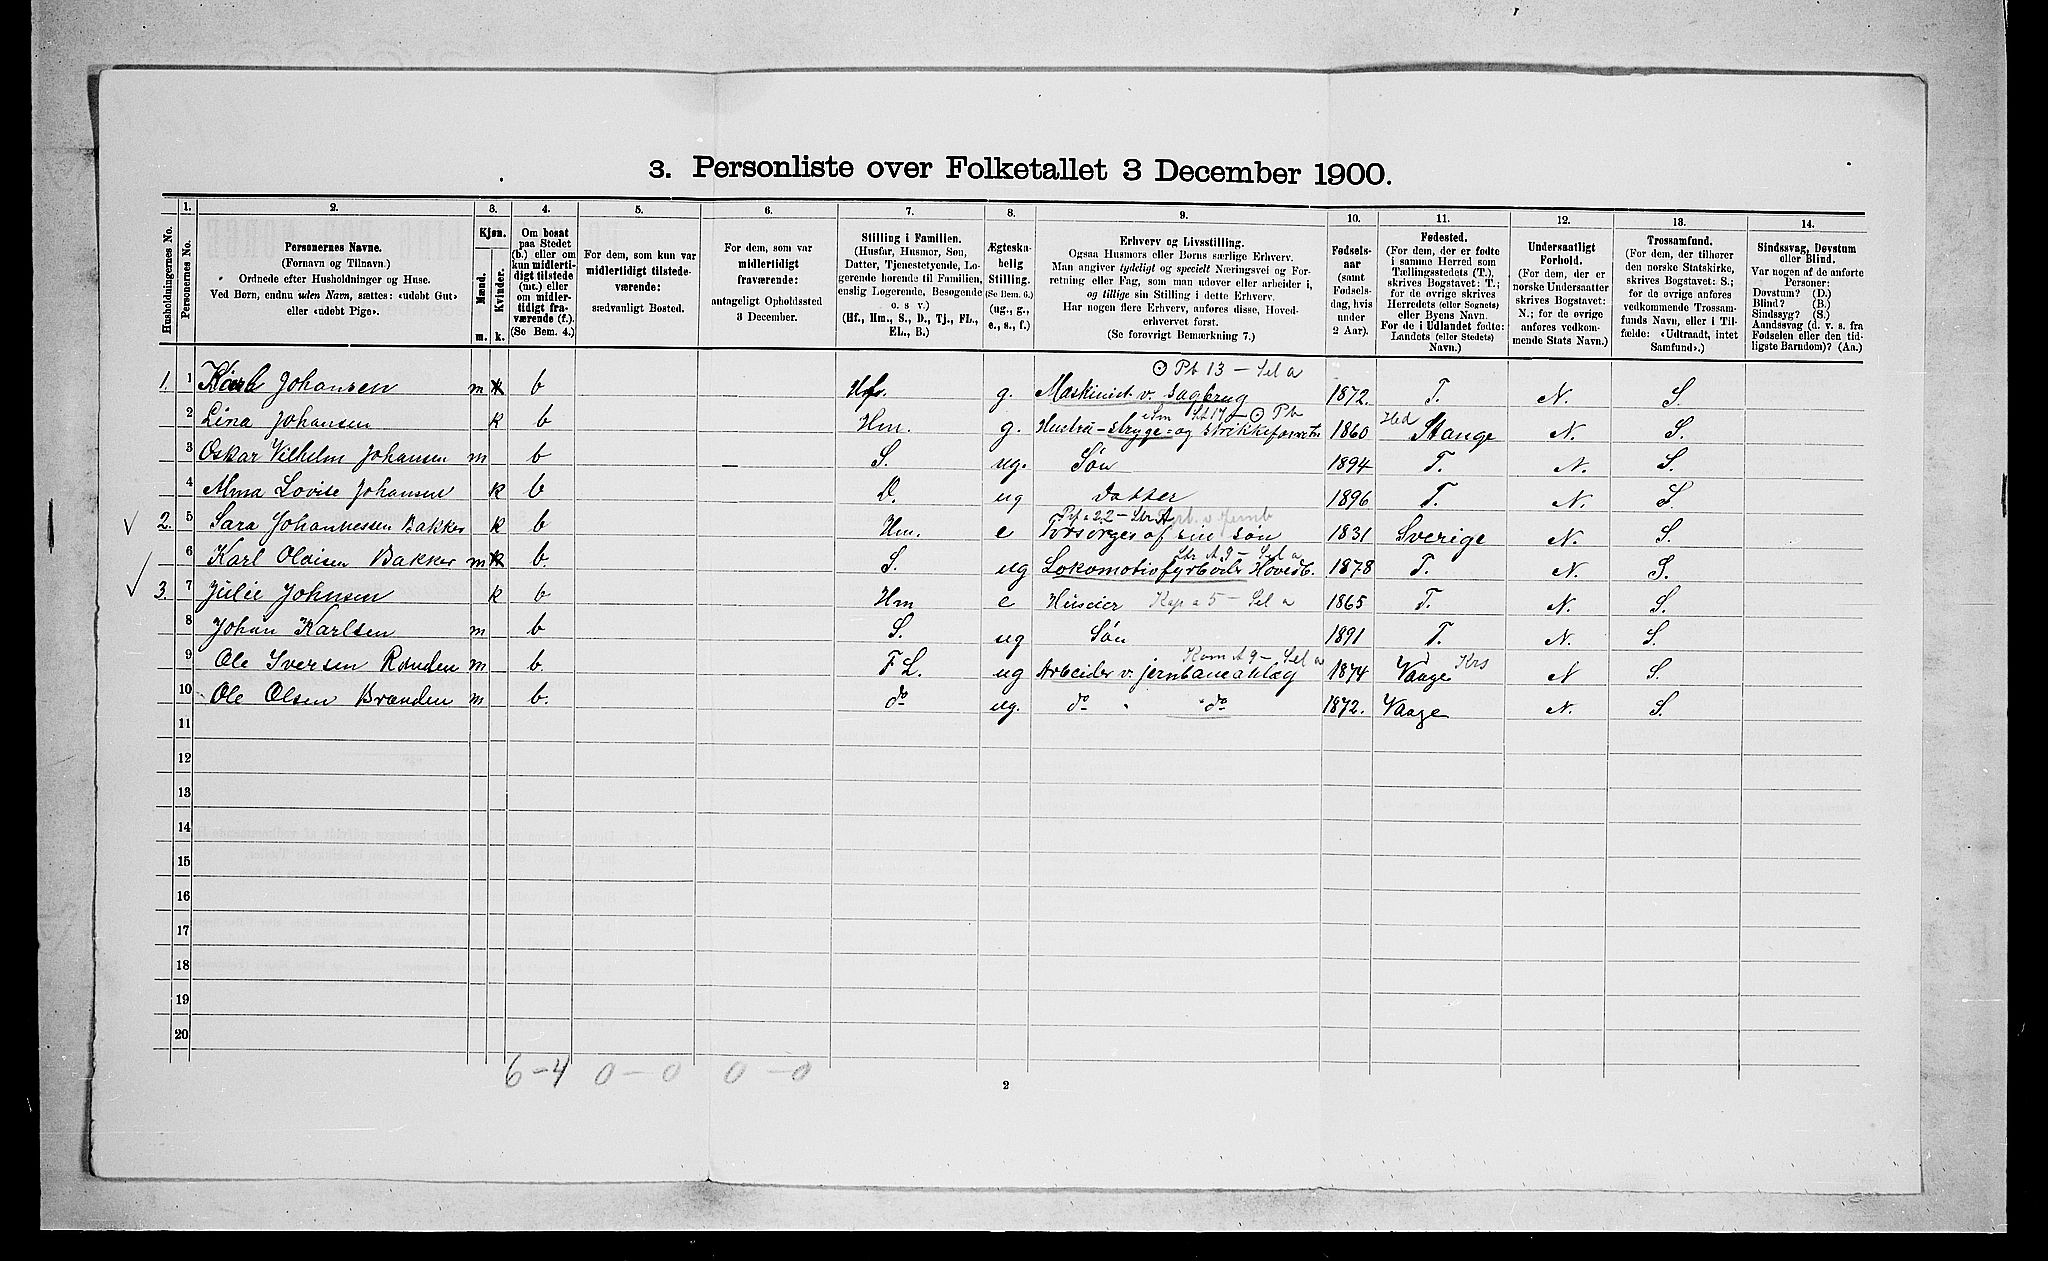 3. Personliste over Folketallet 3 December 1900.
1. 2. 3. 4. 5. 6. 7. 8. 9. 10. 11. 12. 13. 14.
Husholdningernes No.
Personernes No.
Personernes Navne.
(Fornavn og Tilnavn.)
Ordnede efter Husholdninger og Huse.
Ved Børn, endnu uden Navn, sættes: «udøbt Gut»
eller «udøbt Pige».
Kjøn.
Mænd.
Kvinder.
m. k.
Om bosat
paa Stedet
(b.) eller om
kun midlerti-
digt tilstede
(mt.) eller
om midler-
tidigt fra-
værende (f.).
(Se Bem. 4.)
For dem, som kun var
midlertidigt tilstede-
værende:
sædvanligt Bosted.
For dem, som var
midlertidigt
fraværende:
antageligt Opholdssted
3 December.
Stilling i Familien.
(Husfar, Husmor, Søn,
Datter, Tjenestetyende, Lo-
gerende hørende til Familien,
enslig Logerende, Besøgende
o. s. v.)
(Hf., Hm., S., D., Tj., FL.,
EL., B.)
Ægteska-
belig
Stilling.
(Se Bem. 6.)
(ug., g.,
e., s., f.)
Erhverv og Livsstilling.
Ogsaa Husmors eller Børns særlige Erhverv.
Man angiver tydeligt og specielt Næringsvei og For-
retning eller Fag, som man udøver eller arbeider i,
og tillige sin Stilling i dette Erhverv.
Har nogen flere Erhverv, anføres disse, Hoved-
erhvervet først.
(Se forøvrigt Bemærkning 7.)
Fødsels-
aar
(samt
Fødsels-
dag, hvis
under
2 Aar).
Fødested.
(For dem, der er fødte
i samme Herred som
Tællingsstedets (T.),
skrives Bogstavet: T.;
for de øvrige skrives
Herredets (eller Sognets)
eller Byens Navn.
For de i Udlandet fødte:
Landets (eller Stedets)
Navn.)
Undersaatligt
Forhold.
(For dem, der er
norske Undersaatter
skrives Bogstavet:
N.; for de øvrige
anføres vedkom-
mende Stats Navn.)
Trossamfund.
(For dem, der tilhører
den norske Statskirke,
skrives Bogstavet: S.;
for de øvrige anføres
vedkommende Trossam-
funds Navn, eller i Til-
fælde: «Udtraadt, intet
Samfund».)
Sindssvag, Døvstum
eller Blind.
Var nogen af de anførte
Personer:
Døvstum? (D.)
Blind? (B.)
Sindssyg? (S.)
Aandssvag (d. v. s. fra
Fødselen eller den tid-
ligste Barndom)? (Aa.)
Pb 13 – Sel a
1. 1 Karl Johansen m b Hf. g. Maskinist v. Sagbrug 1872. T. N. S.
2 Lina Johansen k b Hm. g. Hustru – stryge- og 1860 Hed Stange N. S.
3 Oskar Vilhelm Johansen m b S. ug. Søn 1894 T. N. S.
4 Alma Lovise Johansen k b D. ug Datter 1896 T. N. S.
2. 5 Sara Johannessen Bakker k b Hm. e Forsørges af sin søn 1831 Sverige N. S.
6 Karl Olaisen Bakker m b. S. ug Lokomotivfyrbøder Hovedb. 1878 T. N. S.
3. 7 Julie Johnsen k b Hm e Huseier Kap a 5 – Sel a 1865 T. N. S.
8 Johan Karlsen m b S. ug Søn 1891 T. N. S.
Kom A 9 – Sel a
9 Ole Iversen Randen m b. F L. ug Arbeider v. jernbaneanlæg 1874 Vaage Krs N S.
10 Ole Olsen Brænden m b. do ug. do " do 1872. Vaage N. S.
11
12
13
14
15
16
17
18
19
20
6 – 4 0 – 0 0 – 0
2